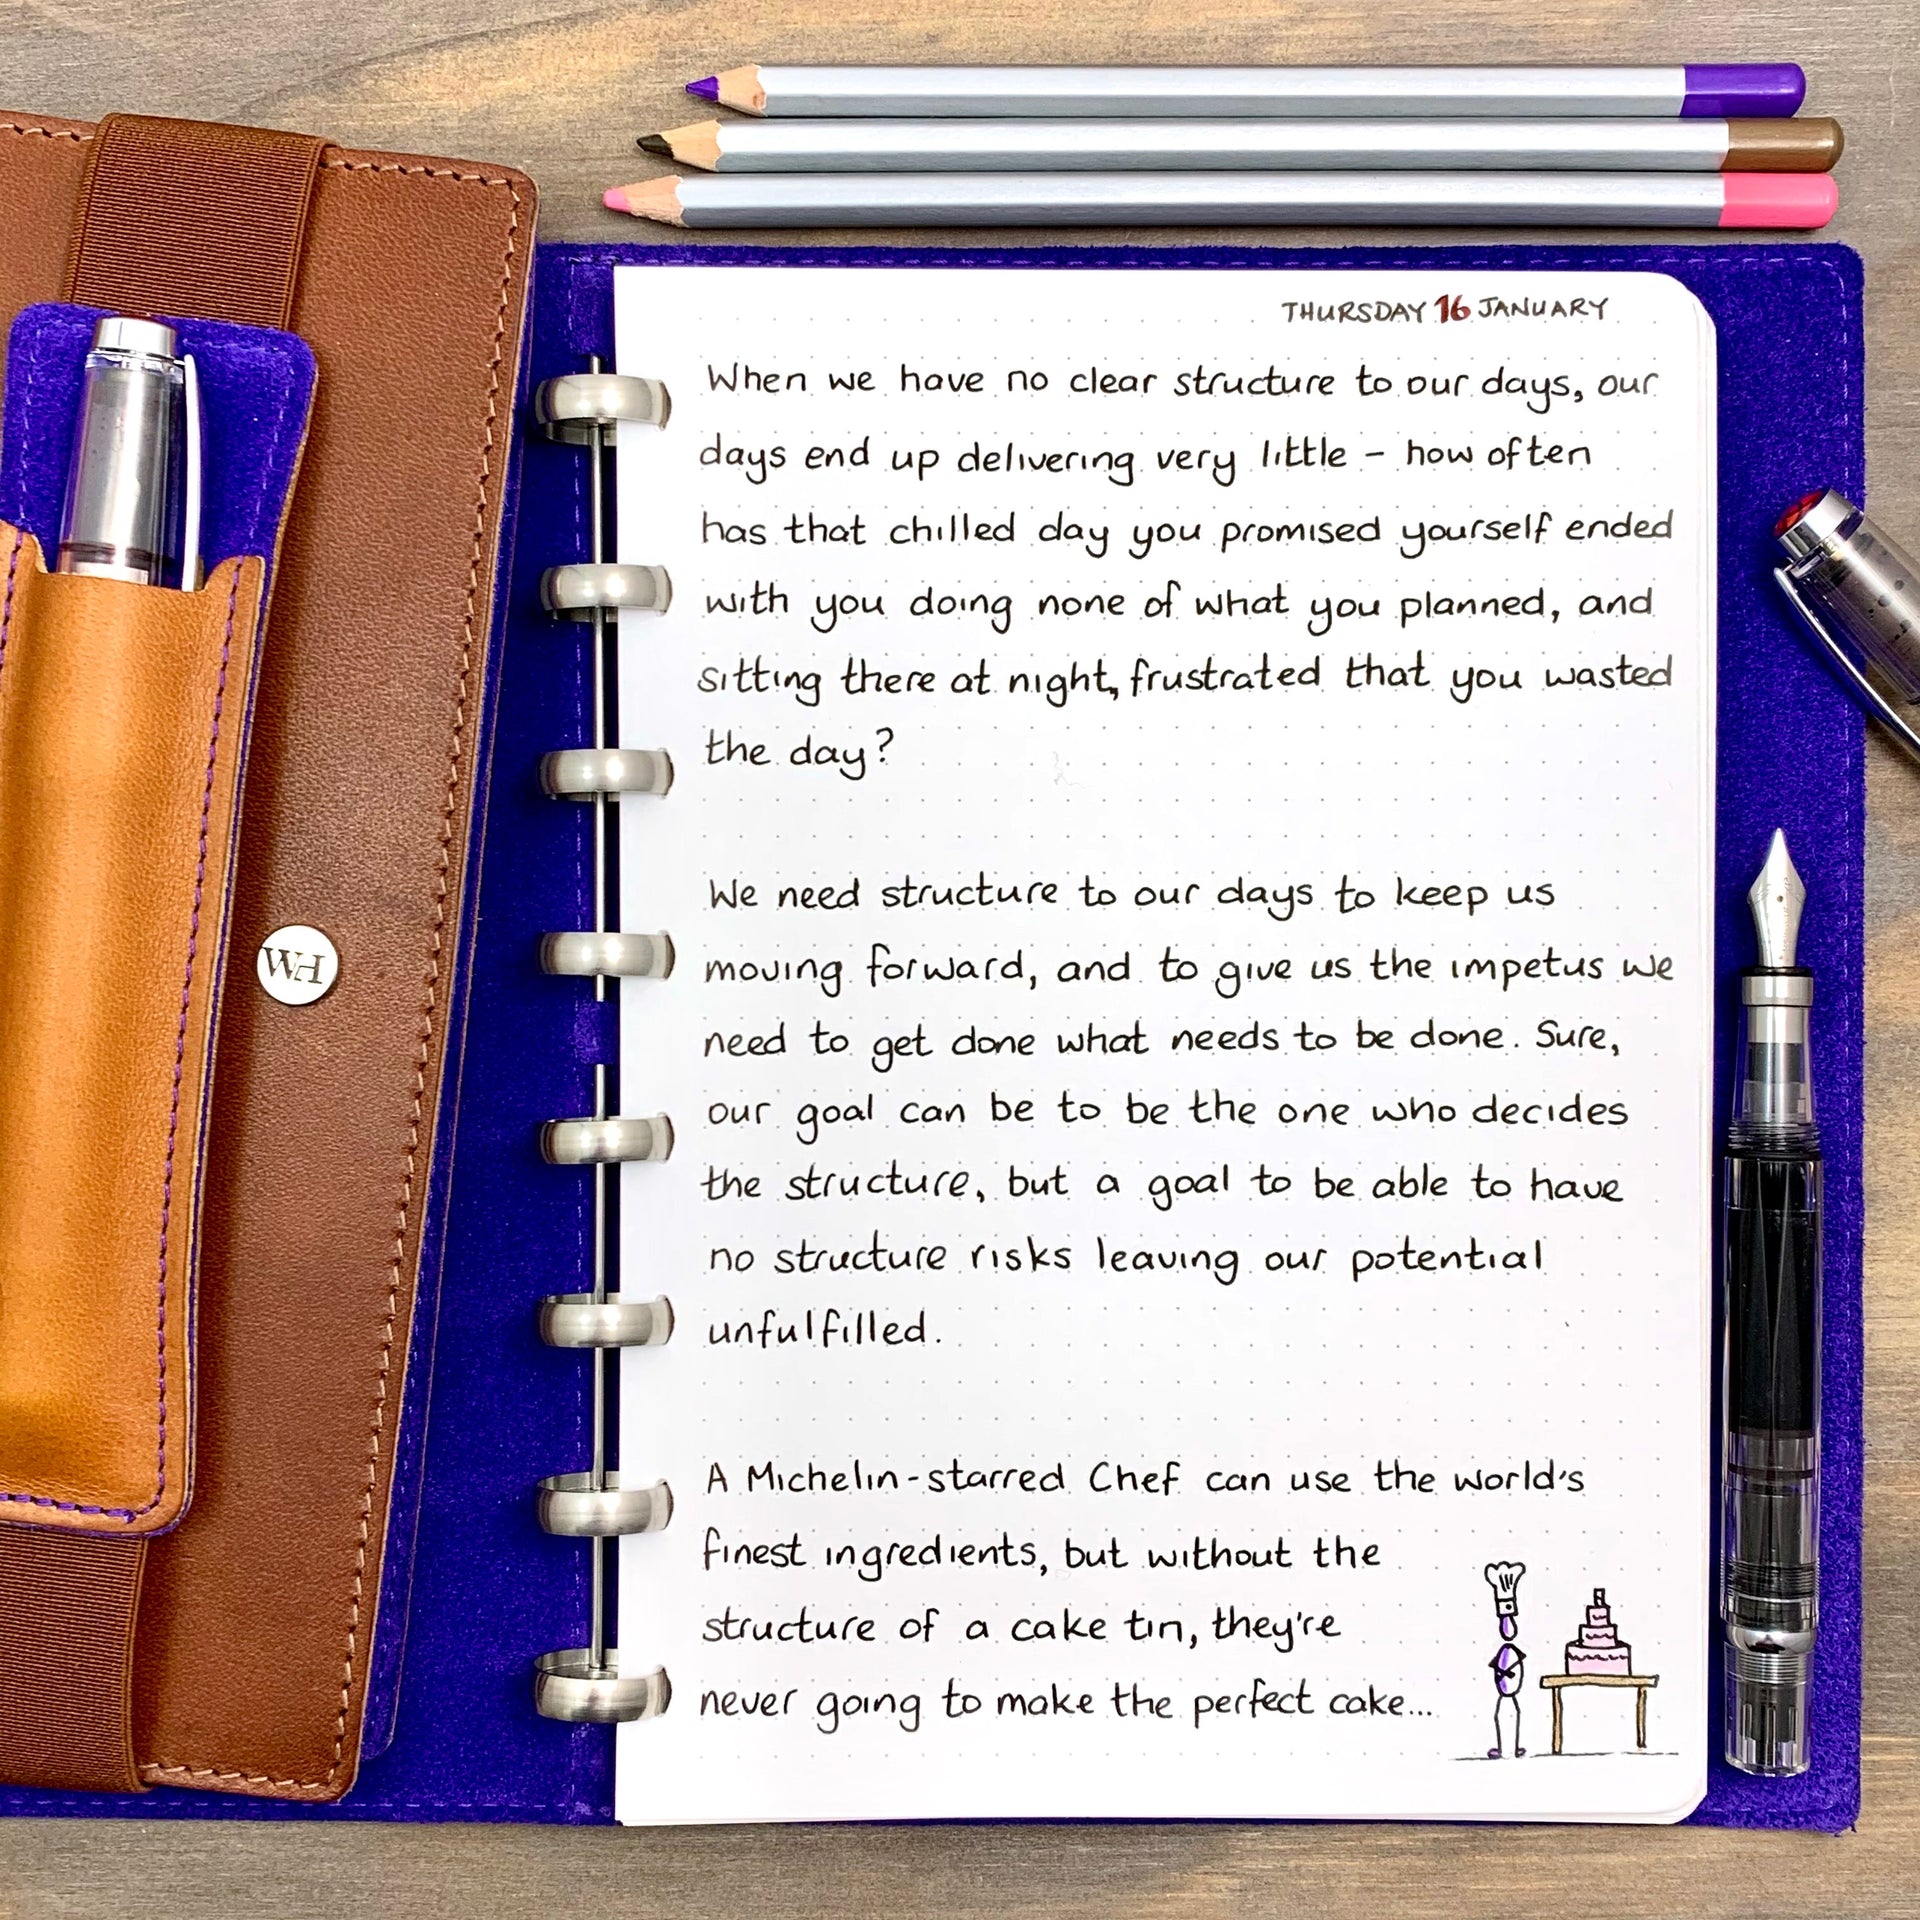 THURSDAY 16 JANUARY
When we have no clear structure to our days, our
days end up delivering very little - how often
has that chilled day you promised yourself ended
with you doing none of what you planned, and
sitting there at night, frustrated that you wasted
the day?
We need structure to our days to keep us
moving forward, and to give us the impetus we
need to get done what needs to be done. Sure,
our goal can be to be the one who decides
the structure, but a goal to be able to have
no structure risks leaving our potential
unfulfilled.
A Michelin-starred Chef can use the world's
finest ingredients, but without the
structure of a cake tin, they're
never going to make the perfect cake...
WH